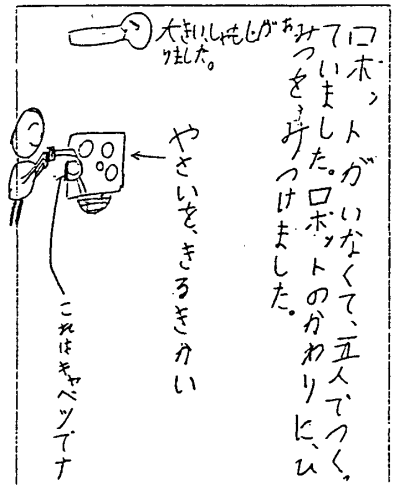 ロボットがいなくて、五人でつくっ
ていました。ロボットのかわりに、ひ
みつを、みつけました。
大きい、しゃもじがあ
りました。
やさいを、きるきかい
これはキャベツです